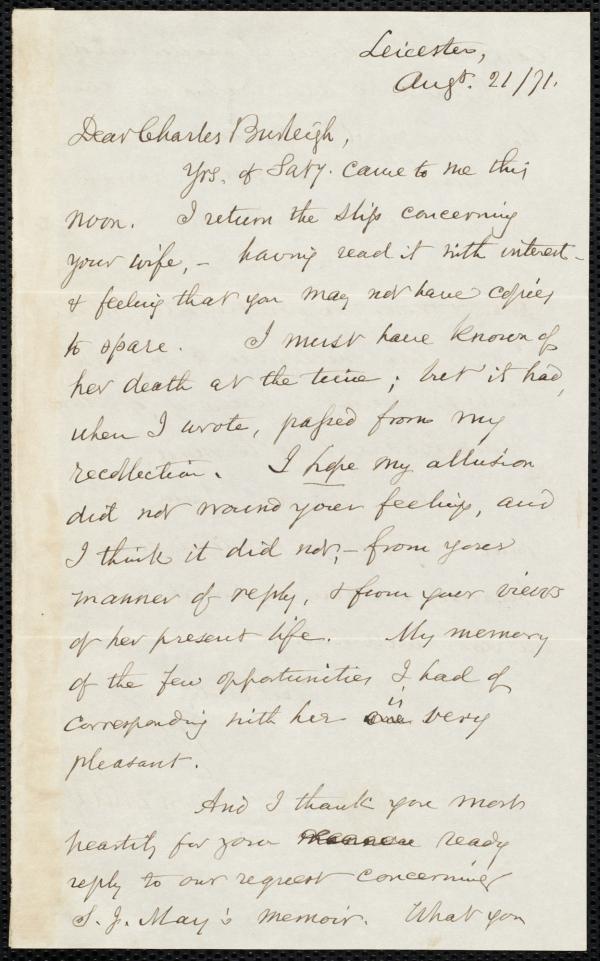 Leicester,
Augt. 21/71.
Dear Charles Burleigh,
Yrs. of Saty. came to me this
noon. I return the slip concerning
your wife, – having read it with interest –
& feeling that you may not have copies
to spare. I must have known of
her death at the time; but it had,
when I wrote, passed from my
recollection. I hope my allusion
did not wound your feelings, and
I think it did not, – from your
manner of reply, & from your views
of her present life. My memory
of the few opportunities I had of
corresponding with her is very
pleasant.
And I thank you most
heartily for your ready
reply to our request concerning
S. J. May's memoir. What you